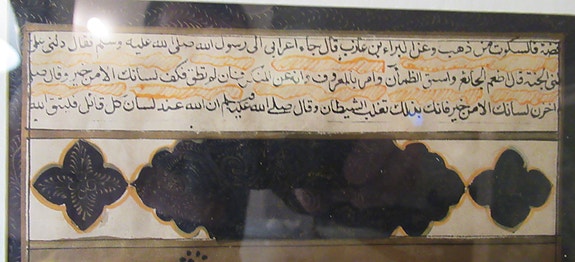 فضة فالسكوت من ذهب وعن البراء بن عازب قال جاء اعرابي الى رسول الله صلى الله عليه وسلم فقال دلني على
الجنة قال اطعم الجايع واسق الظمآن وامر بالمعروف وانه عن المنكر فان لم تطق فكف لسانك الا من خير وقال صلى
اخزن لسانك الا من خير فانك بذلك تغلب الشيطان وقال صلى الله عليه وسلم ان الله عند لسان كل قائل فليتق الله